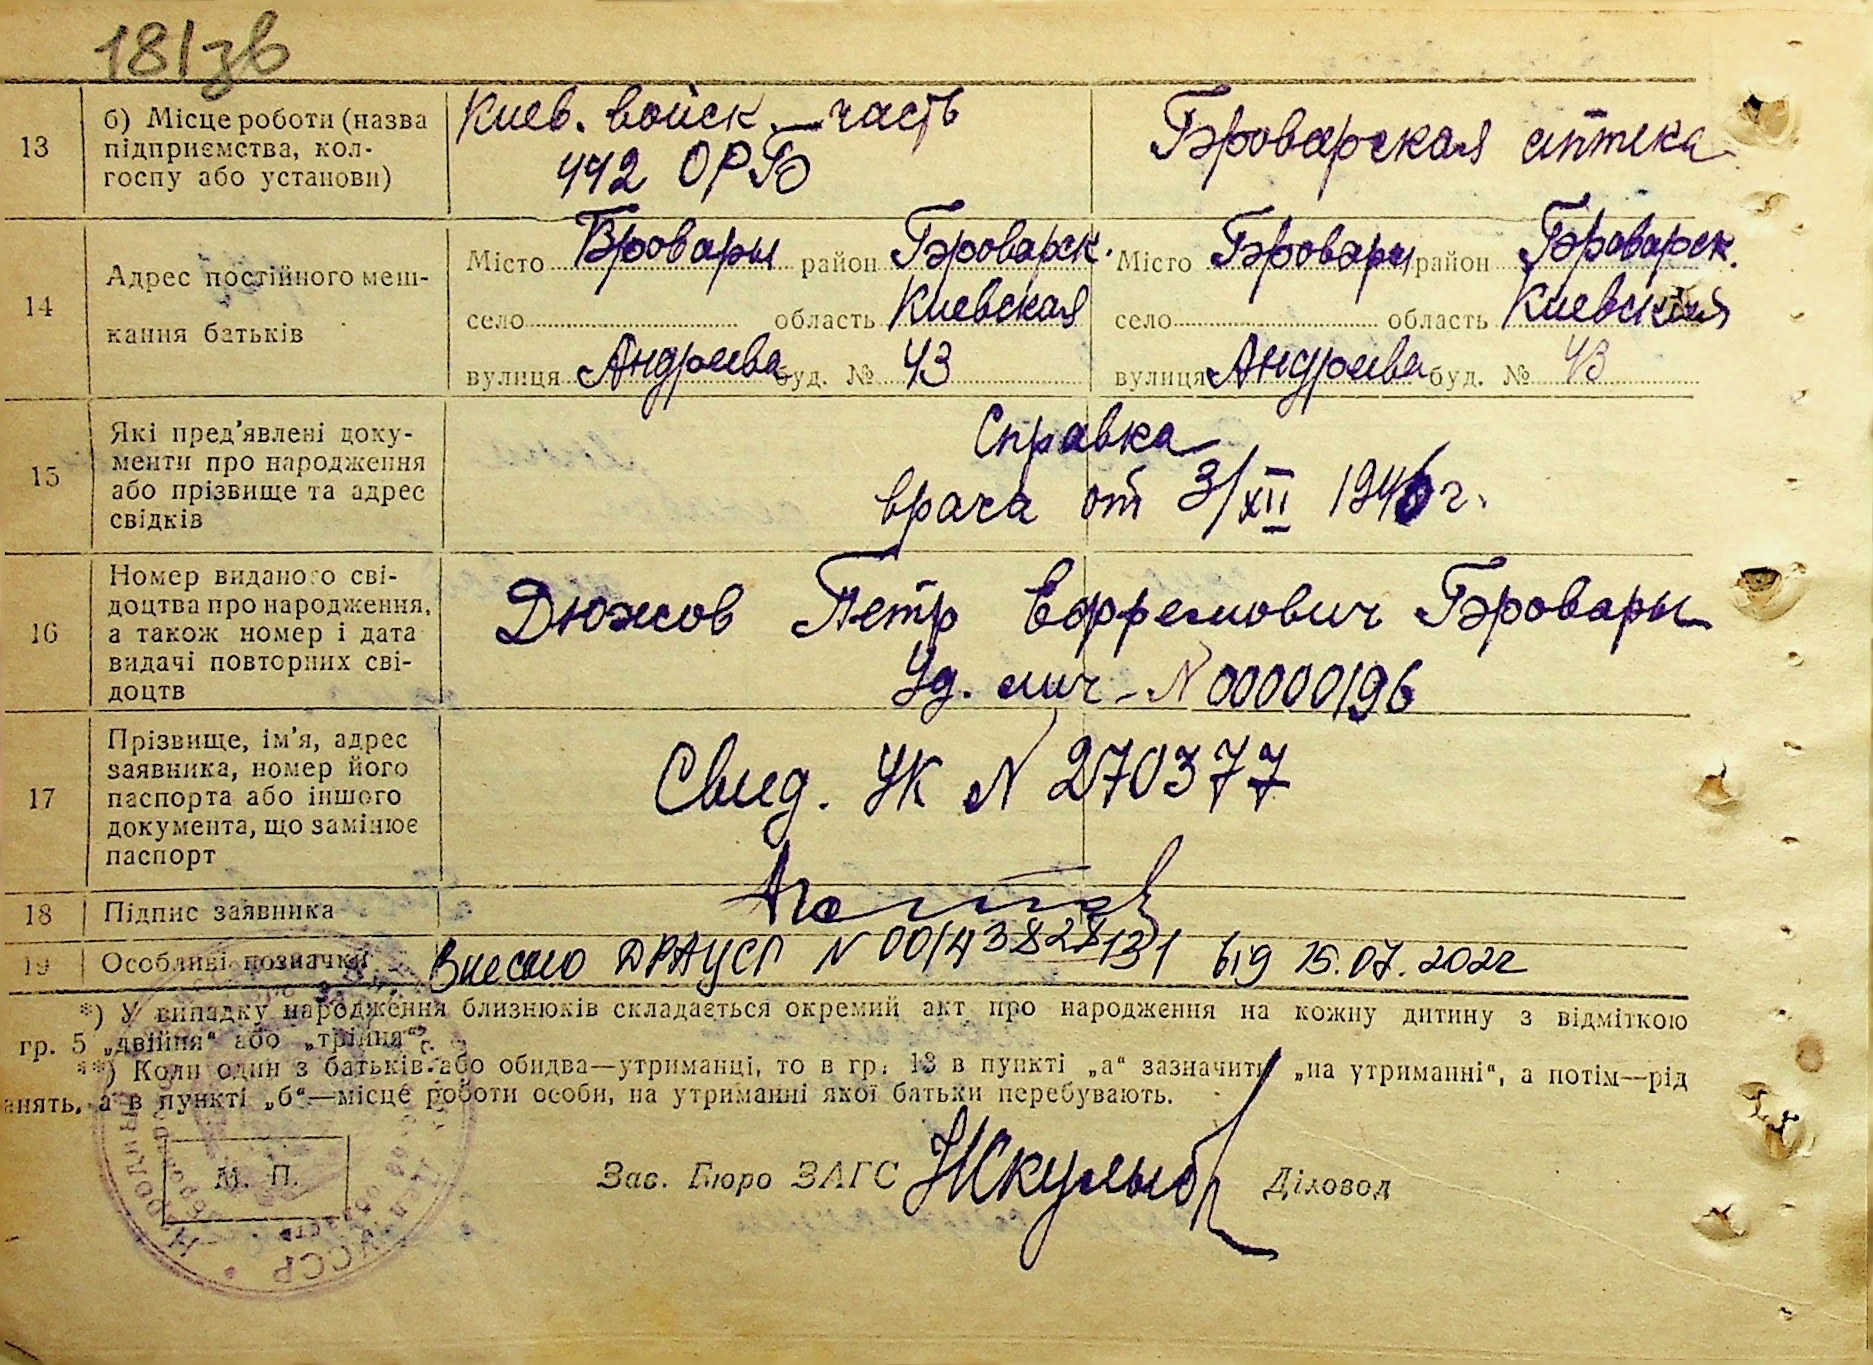 181зв
13
б) Місце роботи (назва
підприємства, кол-
госпу або установи)
Киев. войск. часть
442 ОРБ
Броварская аптека
14
Адрес постійного меш-
кання батьків
Місто Бровары район Броварск.
село область Киевская
вулиця Андреева буд. № 43
Місто Бровары район Броварск.
село область Киевская
вулиця Андреева буд. № 43
15
Які пред’явлені доку-
менти про народження
або прізвище та адрес
свідків
Справка
врача от 3/XII 1946 г.
16
Номер виданого сві-
доцтва про народження,
а також номер і дата
видачі повторних сві-
доцтв
Дюжов Петр Ефремович Бровары
Уд. лич - N 00000196
17
Прізвище, ім’я, адрес
заявника, номер його
паспорта або іншого
документа, що замінює
паспорт
Свид. УК N 270377
18
Підпис заявника
19
Особливі позначки
Внесено ДРАЦСГ N 00143828131 від 15.07.2022
*) У випадку народження близнюків складається окремий акт про народження на кожну дитину з відміткою
гр. 5 „двійня“ або „трійня“.
**) Коли один з батьків або обидва—утриманці, то в гр. 13 в пункті „а“ зазначить „на утриманні“, а потім—рід
анять, а в пункті „б“—місце роботи особи, на утриманні якої батьки перебувають.
М. П.
УССР
Зав. Бюро ЗАГС
Діловод